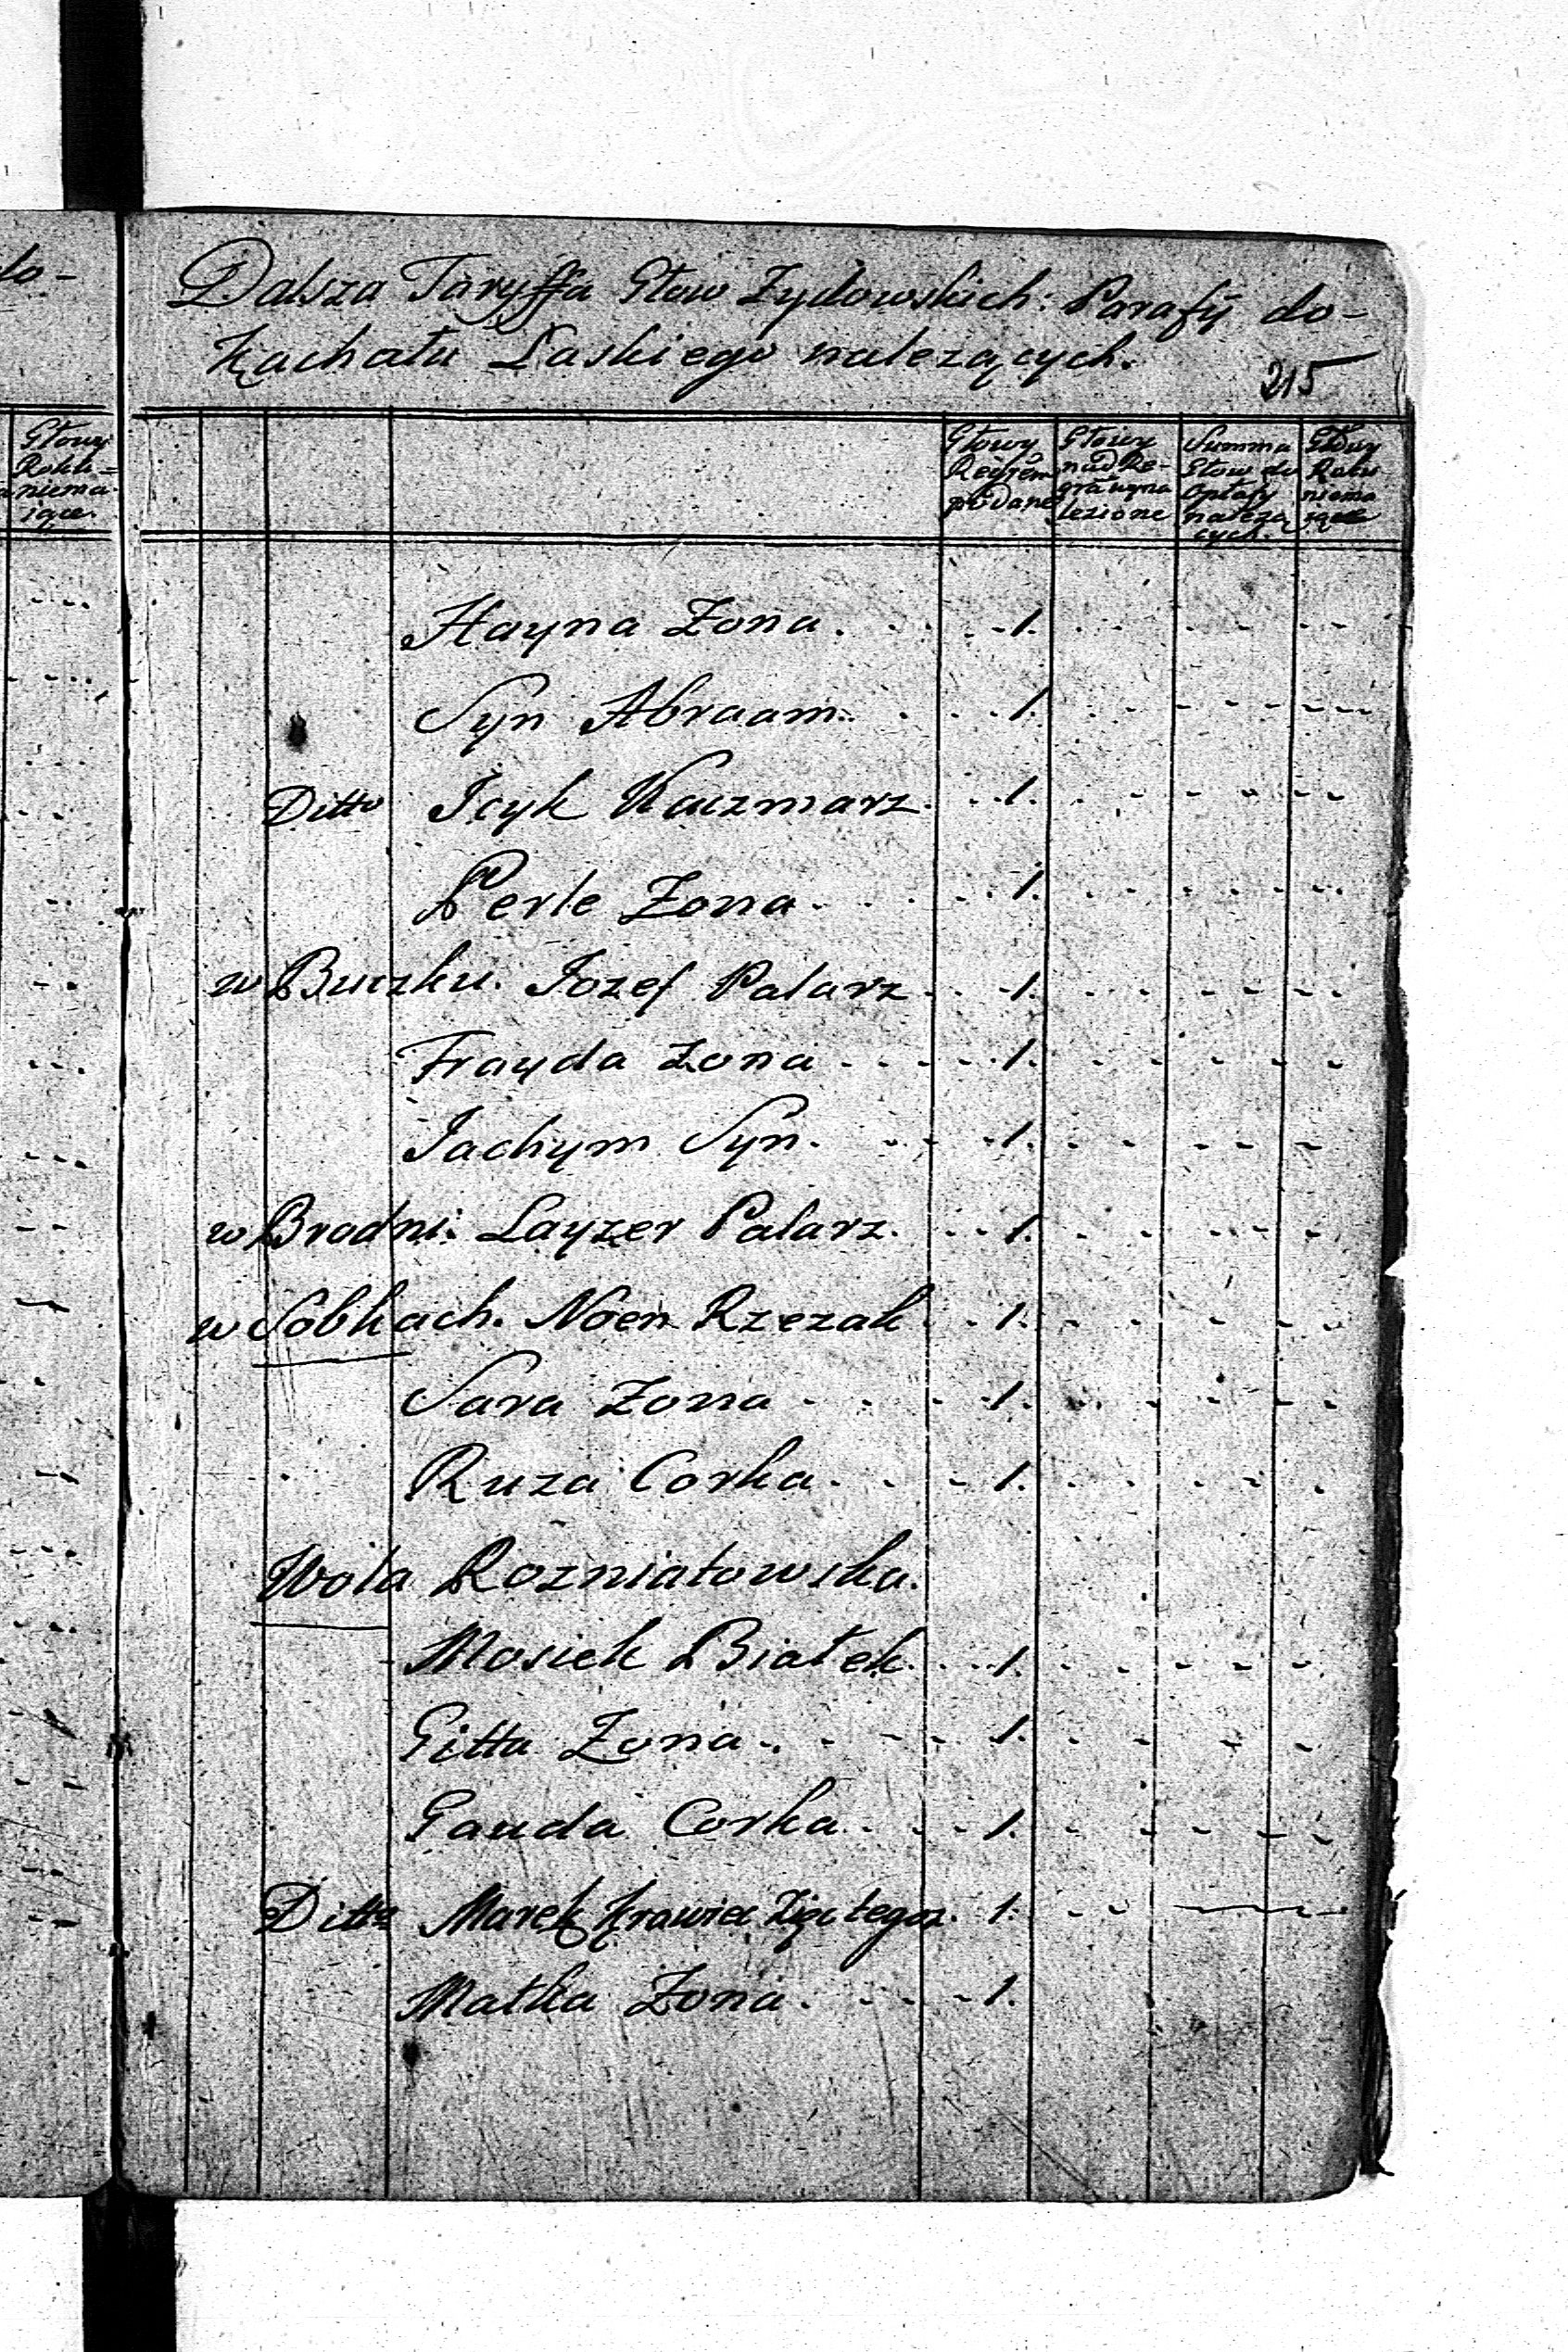 do-
Głowy
Rokk=
niema-
iące.
Dalsza Taryffa Głow Zydowskich: Parafÿ do-
Kachału Laskiego należących.
215
Głowy
Regrem
podane
Głowy
nad Re-
gra wyna
lezione
Summa
Głow do
Opłaty
należą
cych.
Głowy
Roku
niema
iące
Hayna Zona. 1.
Syn Abraam. 1.
Ditto Icyk Kaczmarz. 1.
Perle Zona 1.
w Buczku. Iozef Palarz 1.
Frayda Zona 1.
Iachym Syn. 1.
w Brodni: Layzer Palarz. 1.
w Sobkach. Noen Rzezak 1.
Sara Zona 1.
Ruza Corka 1.
Wola Rozniatowska.
Mosiek Białek 1.
Gitta Zona 1.
Gauda Corka 1.
Ditto Marek Krawiec Zięć tegoz. 1.
Matka Zona. 1.